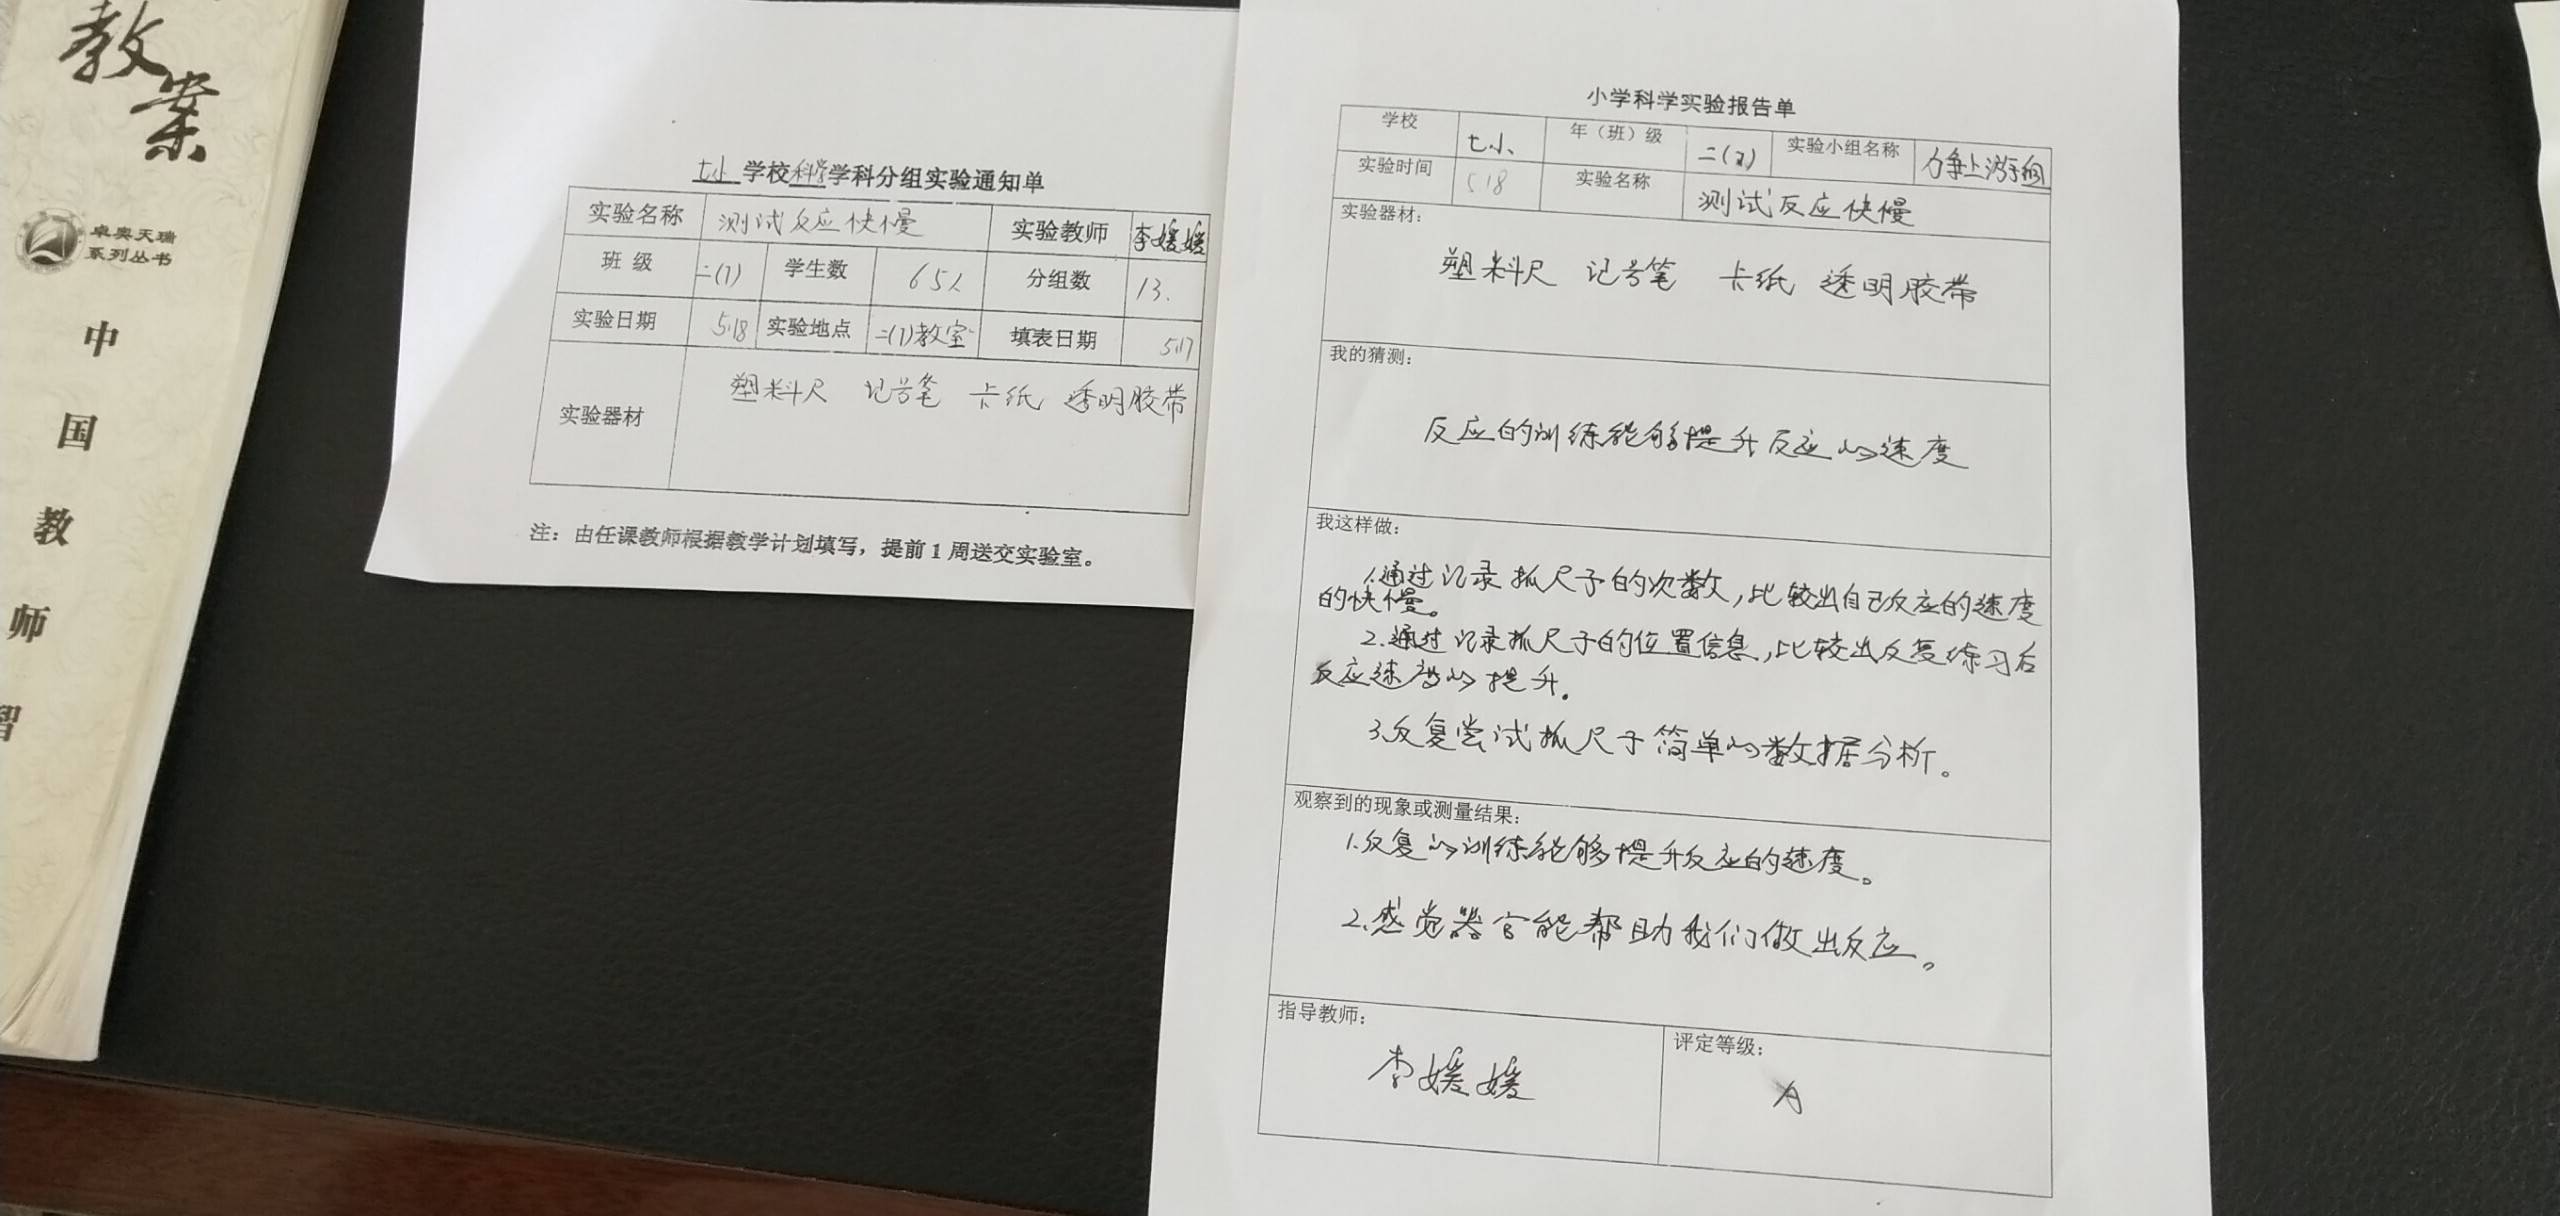 教案
卓奥天瑞
系列丛书
中国教师智
七小学校科学学科分组实验通知单
实验名称 测试反应快慢 实验教师 李媛媛
班 级 二(7) 学生数 65人 分组数 13.
实验日期 5.18 实验地点 二(7)教室 填表日期 5.17
实验器材 塑料尺 记号笔 卡纸 透明胶带
注：由任课教师根据教学计划填写，提前1周送交实验室。
小学科学实验报告单
学校 七小 年（班）级 二(7) 实验小组名称 力争上游组
实验时间 5.18 实验名称 测试反应快慢
实验器材：
塑料尺 记号笔 卡纸 透明胶带
我的猜测：
反应的训练能够提升反应的速度
我这样做：
1.通过记录抓尺子的次数，比较出自己反应的速度
的快慢。
2.通过记录抓尺子的位置信息，比较出反复练习后
反应速度的提升。
3.反复尝试抓尺子简单的数据分析。
观察到的现象或测量结果：
1.反复的训练能够提升反应的速度。
2.感觉器官能帮助我们做出反应。
指导教师： 评定等级：
李媛媛 A